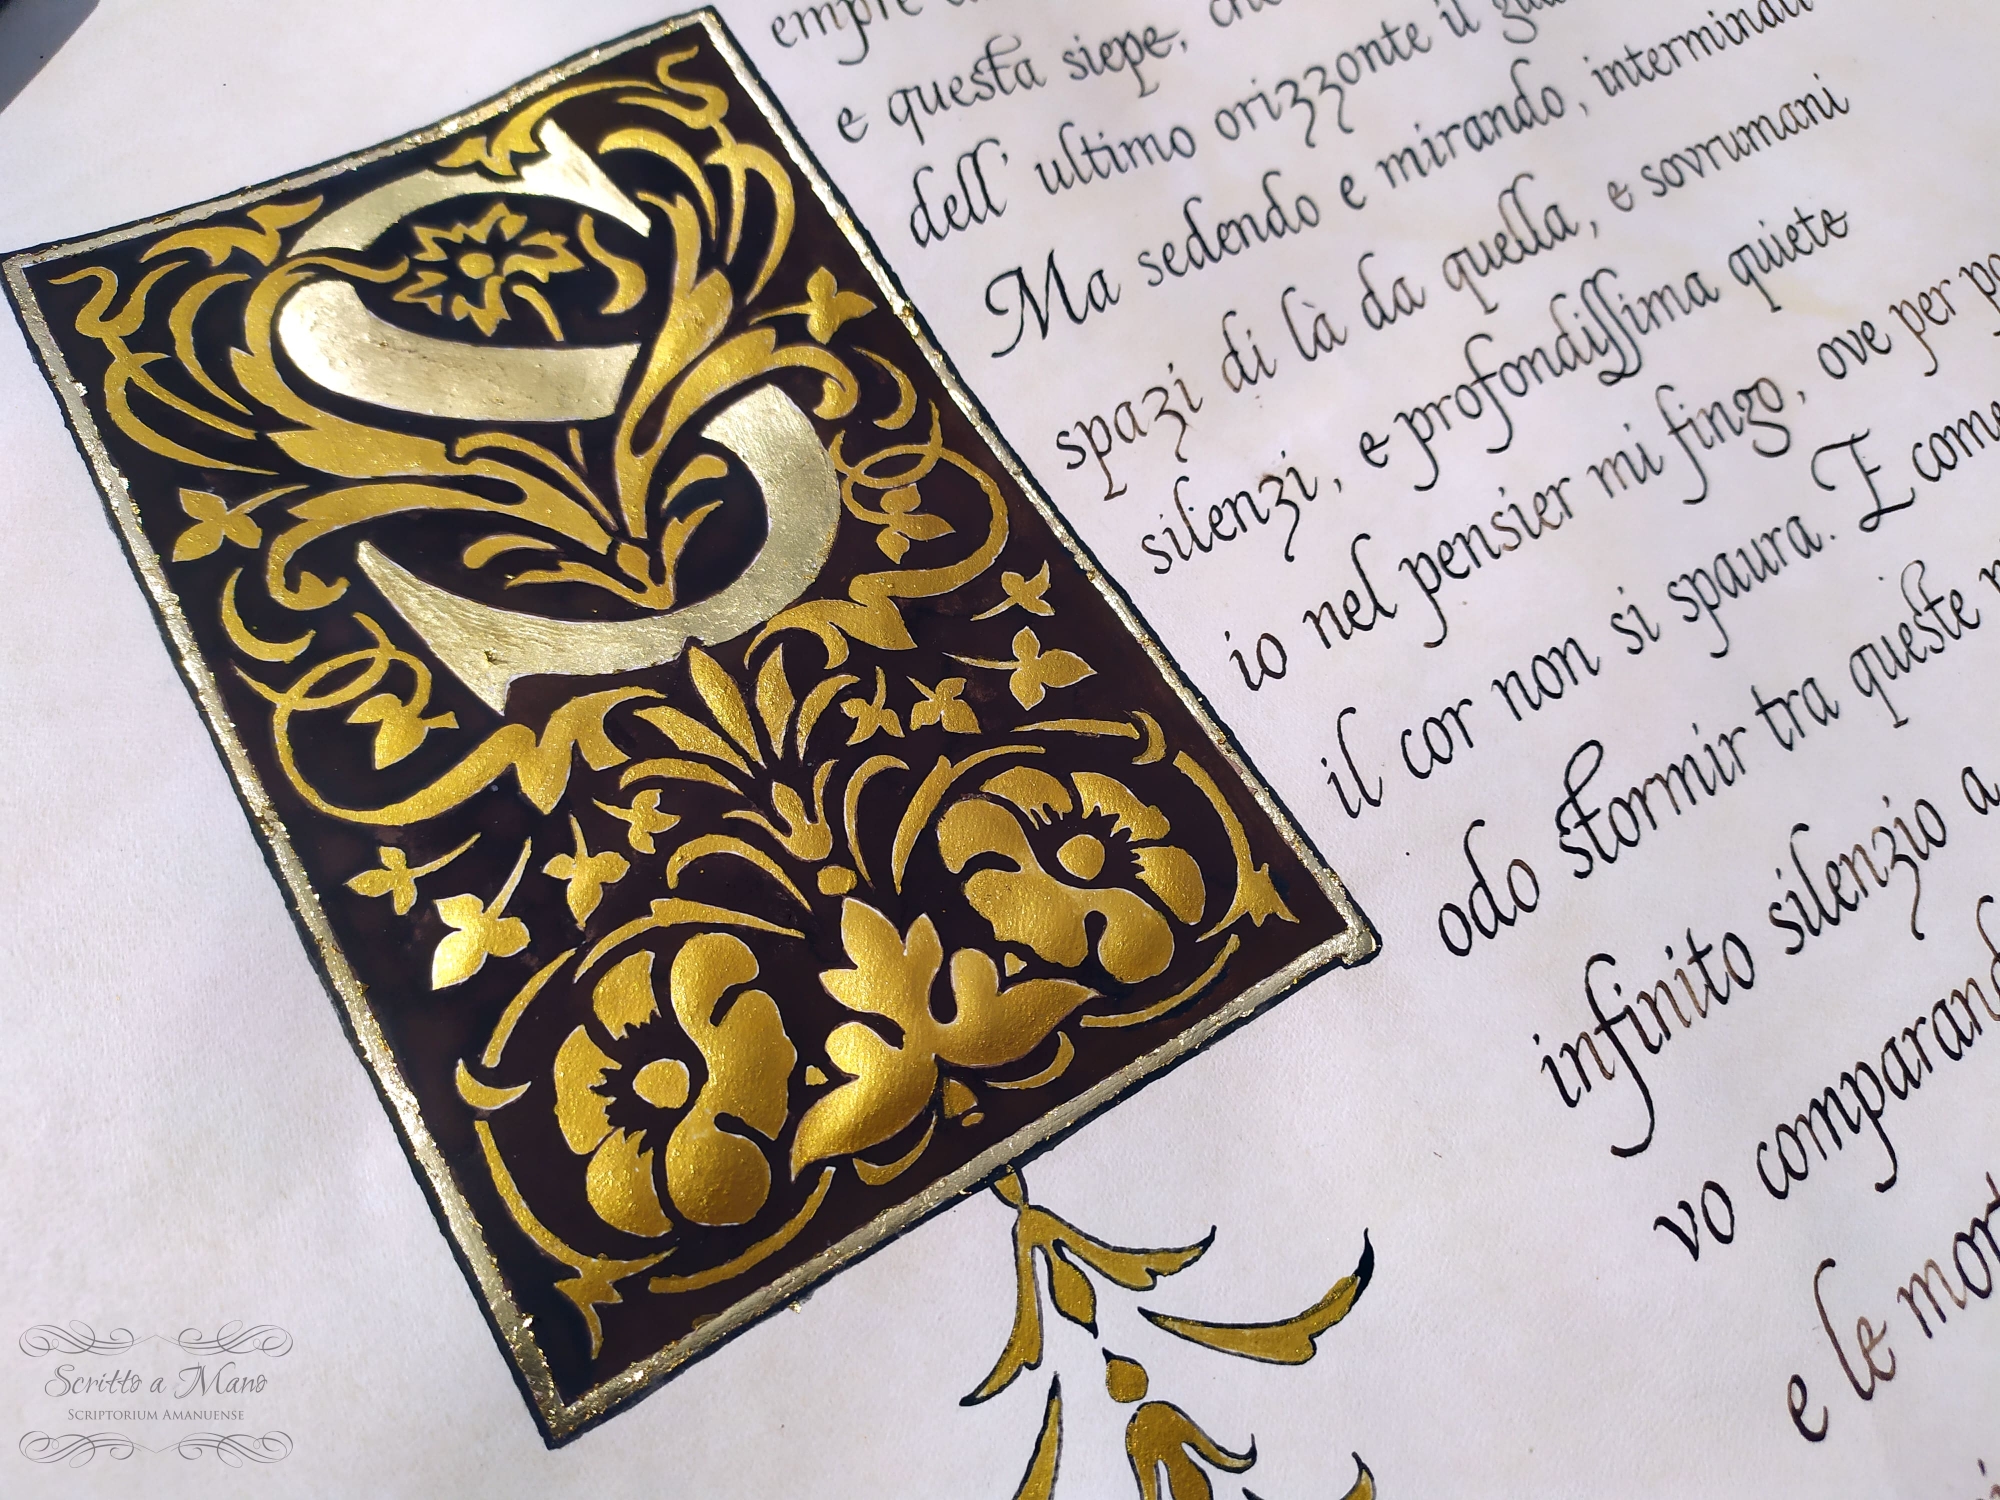 S
e questa siepe, che
dell' ultimo orizzonte il
Ma sedendo e mirando, interminati
spazi di là da quella, e sovrumani
silenzi, e profondissima quiete
io nel pensier mi fingo, ove per
il cor non si spaura. E come
odo stormir tra queste
infinito silenzio a
vo comparand
e le mort
Scritto a Mano
SCRIPTORIUM AMANUENSE